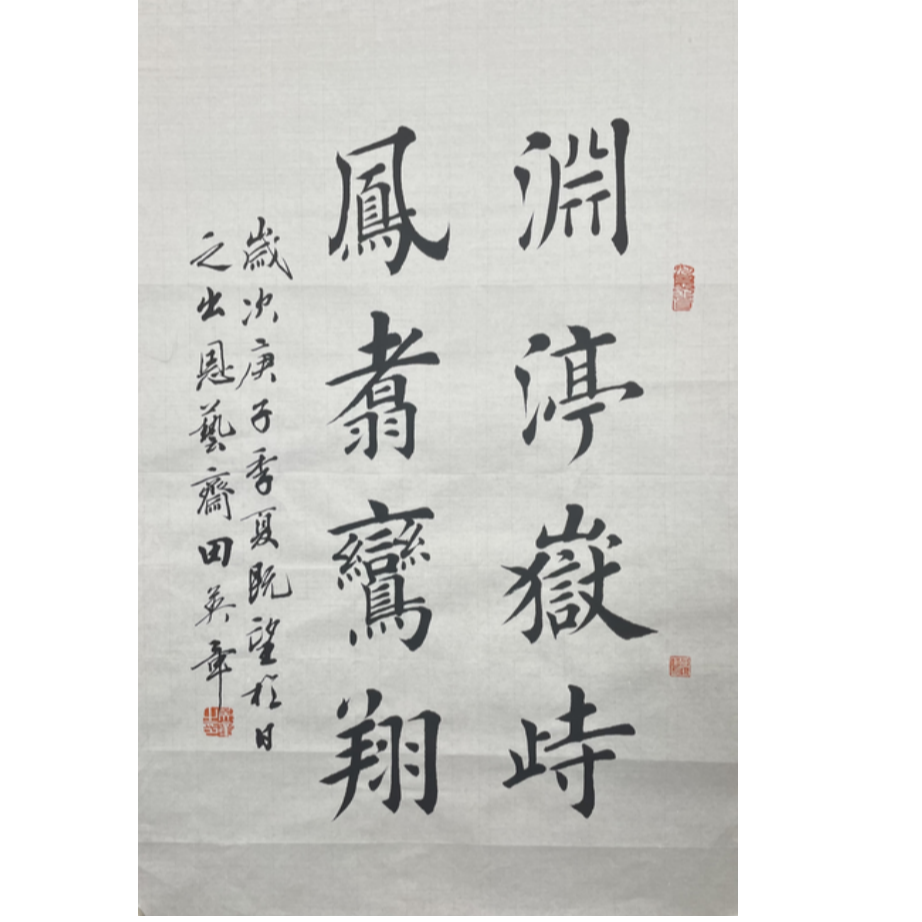 淵渟嶽峙
鳳翥鸞翔
歲次庚子季夏既望於日
之出恩藝齋田英章